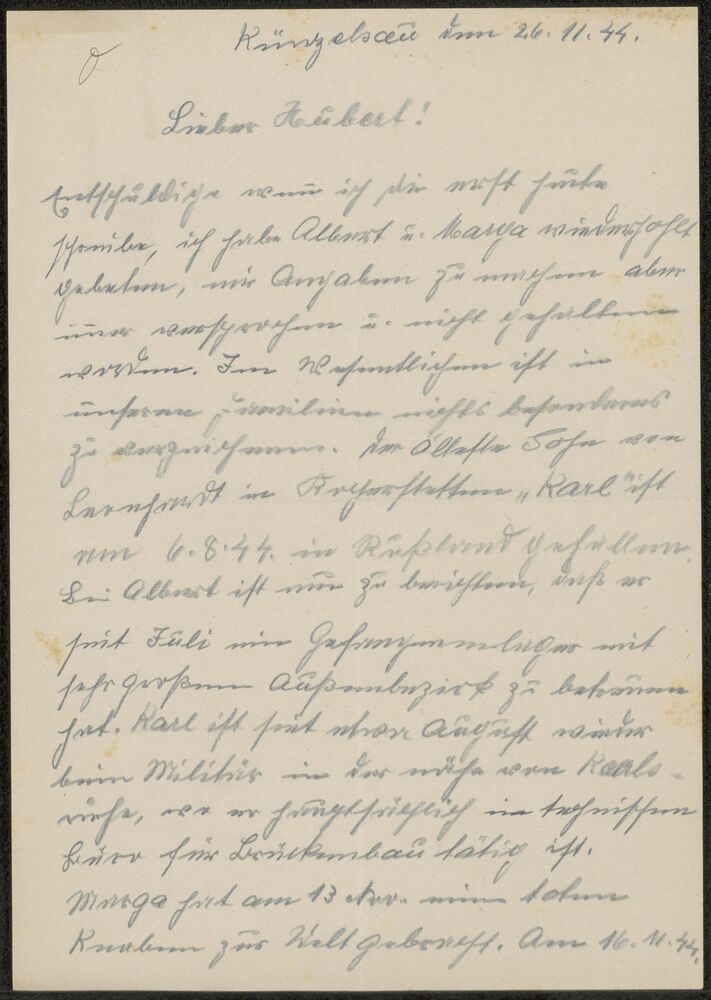 Künzelsau den 26.11.44.
Lieber Hubert!
Entschuldige wenn ich Dir erst heute
schreibe, ich habe Albert u. Marga wiederhohlt
gebeten, mir Angaben zu machen aber
immer versprochen u. nicht gehalten
worden. Im Wesentlichen ist in
unseren Familien nichts besonderes
zu verzeichnen. Der Älteste Sohn von
Leonhardt in Kocherstetten „Karl" ist
am 6.8.44. in Rußland gefallen.
Bei Albert ist nur zu berichten, daß er
seit Juli ein Gefangenenlager mit
sehr großem Außenbezirk zu betreuen
hat. Karl ist seit etwa August wieder
beim Militär in der nähe von Karls-
ruhe, wo er hauptsächlich im technischen
Büro für Brückenbau tätig ist.
Marga hat am 13 Nov. einen toten
Knaben zur Welt gebracht. Am 16.11.44.